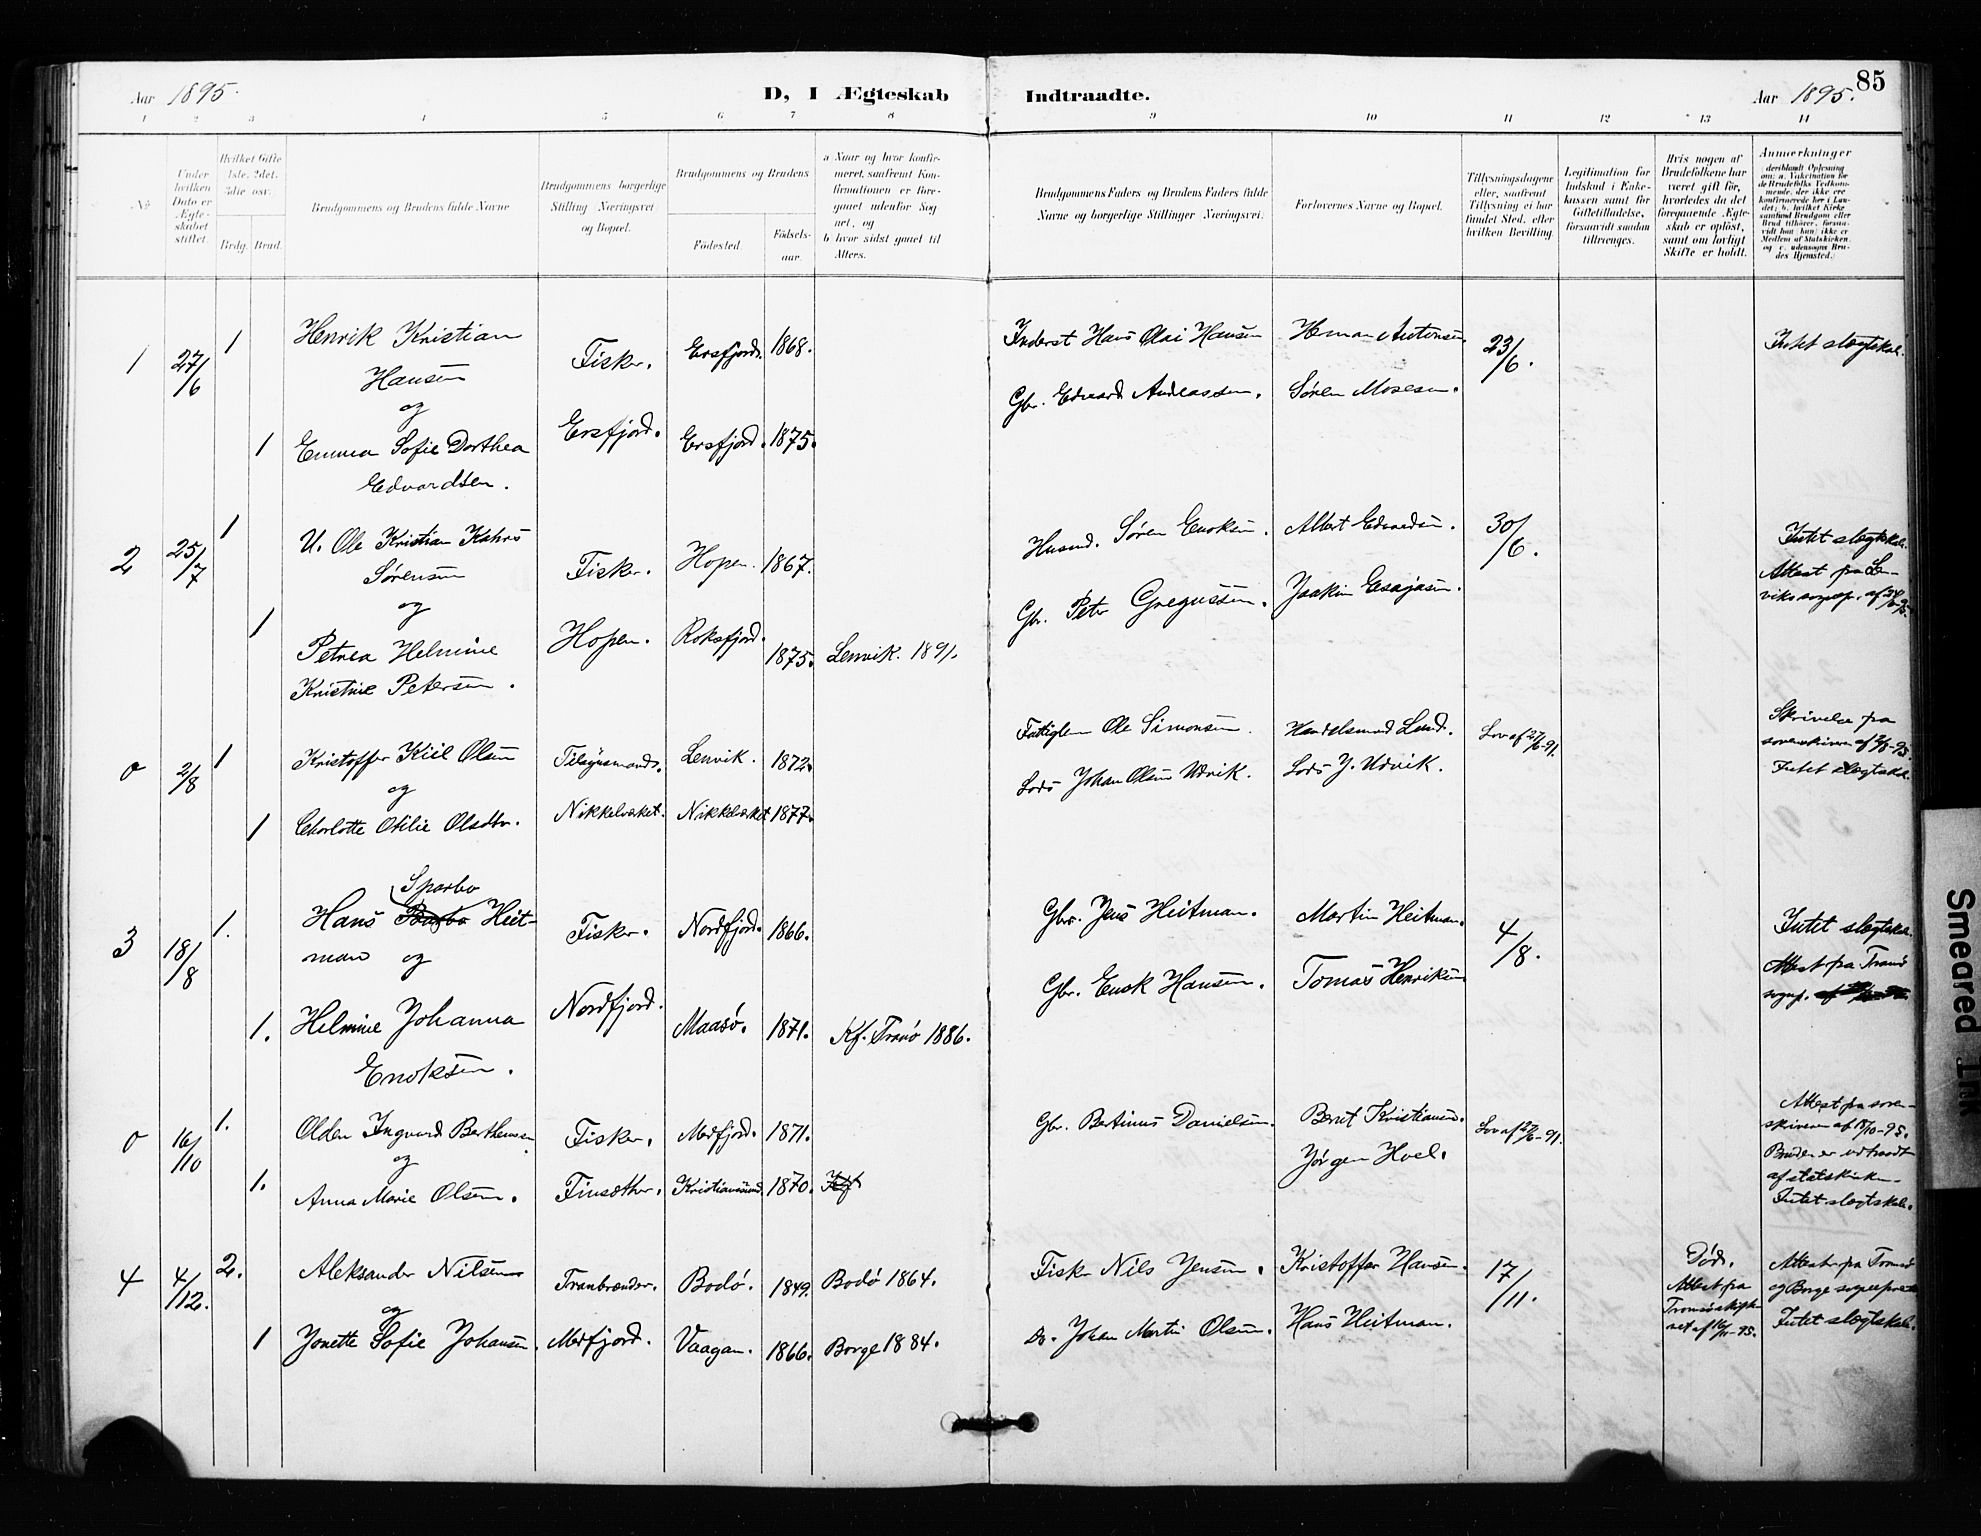 85
Aar 1895.
D, I Ægteskab
Indtraadte.
Aar 1895.
1 2 3 4 5 6 7 8 9 10 11 12 13 14
No
Under hvilken Dato er Ægteskabet stiftet.
Hvilket Gifte
Brdg. Brud.
Brudgommens og Brudens fulde Navne
Brudgommens borgerlige Stilling Næringsvei og Bopæl.
Brudgommens og Brudens
Fødested.
Fødselsaar.
a Naar og hvor konfirmeret, saafremt Konfirmationen er foregaaet udenfor Sognet, og
b hvor sidst gaaet til Alters.
Brudgommens Faders og Brudens Faders fulde Navne og borgerlige Stillinger Næringsvei.
Forlovernes Navne og Bopæl.
Tillysningsdagene eller, saafremt Tillysning ei har fundet Sted, efter hvilken Bevilling
Legitimation for Indskud i Enkekassen samt for Giftetilladelse, forsaavidt saadan tiltrænges.
Hvis nogen af Brudefolkene har været gift før, hvorledes da det foregaaende Ægteskab er opløst, samt om lovligt Skifte er holdt.
Anmærkninger
1 27/6 1 Henrik Kristian Fisker. Ersfjord. 1868. Inderst Hans Olai Hansen Herman Antonsen 23/6. Intet slegtskab.
Hansen
og
1 Emma Sofie Dorthea Ersfjord. Ersfjord. 1875. Gbr. Edvard Andreassen. Søren Mosesen.
Edvardsen.
2 25/7 1 U. Ole Kristian Kahrs Fisker. Hopen. 1867. Husmd. Søren Enoksen. Albert Edvardsen. 30/6. Intet slegtskab.
Sørensen
og
1 Petrea Helmine Hopen. Roksfjord. 1875. Lenvik. 1891. Gbr. Peter Gregussen. Joakim Esajasen. Attest fra Len-
Kristine Petersen. viks sognep. af
0 2/8 1 Kristoffer Kiil Olsen Tilsynsmand. Lenvik. 1872. Ole Simonsen. Handelsmand Lund. Lov af 27/6-91. Skrivelse fra
og sorenskriveren af
1 Charlotte Otilie Olsdtr. Nikkelverket. Nikkelverket 1877. Lods Johan Olsen Udvik. Lods J. Udvik. Intet slegtskab.
Sparbo
3 18/8 1. Hans Heit- Fisker. Nordfjord. 1866. Gbr. Jens Heitman. Martin Heitman. 4/8. Intet slegtskab.
man og
1. Helmine Johanna Nordfjord. Maasø. 1871. Kf. Tranø 1886. Gbr. Enok Hansen. Tomas Henriksen Attest fra Tranø
Enoksen. sognep.
0 16/10 1. Olden Ingvard Berthensen Fisker. Mefjord. 1871. Gbr. Bertinus Danielsen. Bernt Kristiansen. Lov af 27/6-91. Attest fra soren-
og skriveren af /10-95.
1. Anna Marie Olsen. Finsæther. Kristiansund 1870. Kf Jørgen Hvel. Bruden er udtraadt
af statskirken
Intet slegtskab.
4 4/12. 2. Aleksander Nilsen Tranbrænder. Bodø. 1849. Bodø 1864. Fisker Nils Jensen. Kristoffer Hansen. 17/11. Død. Attest fra Tromsø
og Attest fra og Borge
1 Jonette Sofie Johansen. Mefjord. Vaagan. 1866. Borge 1884. Do. Johan Martin Olsen. Hans Heitman. Tromsø skifte- Intet slegtskab.
ret af
Smeared Ink